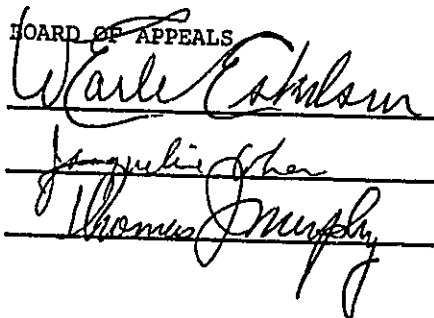 BOARD OF APPEALS
W Earle Eskilson
Jacqueline
Thomas J Murphy